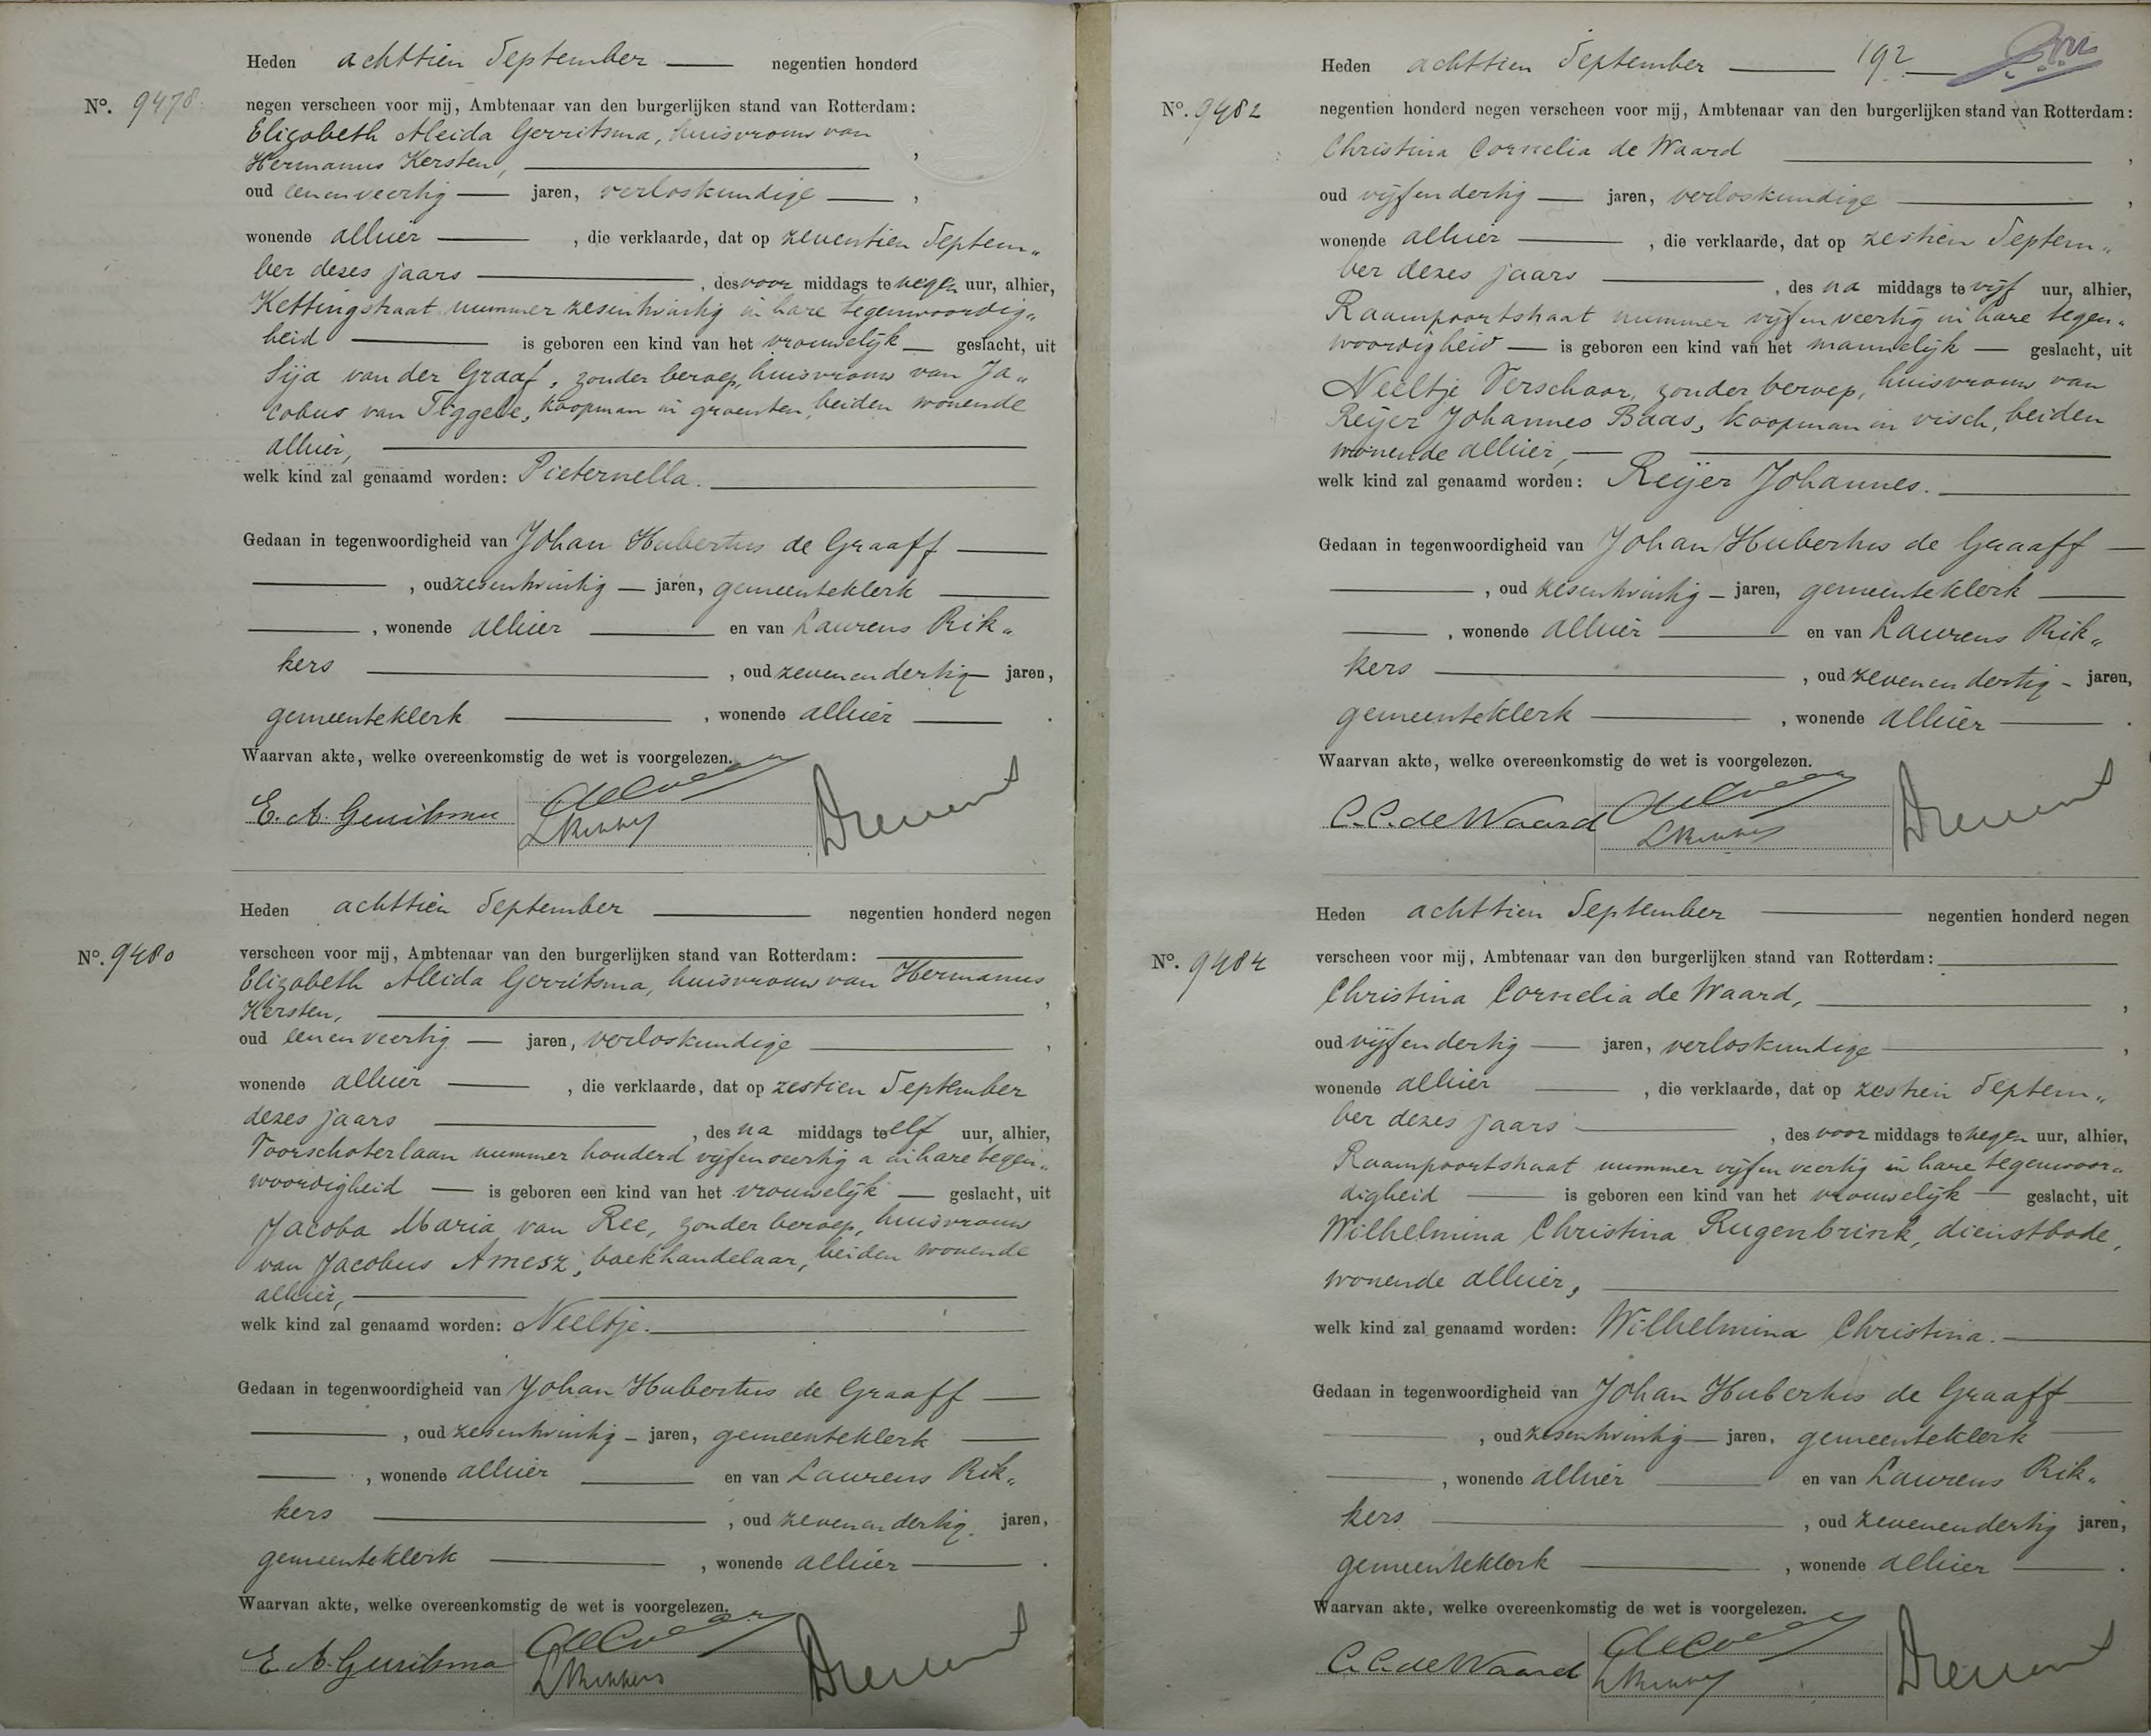 Heden achttien September negentien honderd
No. 9478. negen verscheen voor mij, Ambtenaar van den burgerlijken stand van Rotterdam:
Elizabeth Aleida Gerritsma, huisvrouw van
Hermanus Kersten,
oud eenenveertig jaren, verloskundige,
wonende alhier, die verklaarde, dat op zeventien Septem„
ber dezes jaars, des voor middags te negen uur, alhier,
Kettingstraat nummer zesentwintig in hare tegenwoordig„
heid is geboren een kind van het vrouwelijk geslacht, uit
Sija van der Graaf, zonder beroep, huisvrouw van Ja„
cobus van Tiggele, koopman in groenten, beiden wonende
alhier,
welk kind zal genaamd worden: Pieternella.
Gedaan in tegenwoordigheid van Johan Hubertus de Graaff
, oud zesentwintig jaren, gemeenteklerk
, wonende alhier en van Laurens Rik„
kers, oud zevenendertig jaren,
gemeenteklerk, wonende alhier.
Waarvan akte, welke overeenkomstig de wet is voorgelezen.
E. A. Gerritsma
L Rikkers
Heden achttien September negentien honderd negen
No. 9480 verscheen voor mij, Ambtenaar van den burgerlijken stand van Rotterdam:
Elizabeth Aleida Gerritsma, huisvrouw van Hermanus
Kersten,
oud eenenveertig jaren, verloskundige,
wonende alhier, die verklaarde, dat op zestien September
dezes jaars, des na middags te elf uur, alhier,
Voorschoterlaan nummer honderd vijfenveertig a in hare tegen„
woordigheid is geboren een kind van het vrouwelijk geslacht, uit
Jacoba Maria van Ree, zonder beroep, huisvrouw
van Jacobus Amesz, boekhandelaar, beiden wonende
alhier,
welk kind zal genaamd worden: Neeltje.
Gedaan in tegenwoordigheid van Johan Hubertus de Graaff
, oud zesentwintig jaren, gemeenteklerk
, wonende alhier en van Laurens Rik„
kers, oud zevenendertig jaren,
gemeenteklerk, wonende alhier.
Waarvan akte, welke overeenkomstig de wet is voorgelezen.
E. A. Gerritsma
L Rikkers
Heden achttien September 192
No. 9482 negentien honderd negen verscheen voor mij, Ambtenaar van den burgerlijken stand van Rotterdam:
Christina Cornelia de Waard,
oud vijfendertig jaren, verloskundige,
wonende alhier, die verklaarde, dat op zestien Septem„
ber dezes jaars, des na middags te vijf uur, alhier,
Raampoortstraat nummer vijfenveertig in hare tegen„
woordigheid is geboren een kind van het mannelijk geslacht, uit
Neeltje Verschoor, zonder beroep, huisvrouw van
Reijer Johannes Baas, koopman in visch, beiden
wonende alhier,
welk kind zal genaamd worden: Reijer Johannes.
Gedaan in tegenwoordigheid van Johan Hubertus de Graaff
, oud zesentwintig jaren, gemeenteklerk
, wonende alhier en van Laurens Rik„
kers, oud zevenendertig jaren,
gemeenteklerk, wonende alhier.
Waarvan akte, welke overeenkomstig de wet is voorgelezen.
C. C. de Waard
L Rikkers
Heden achttien September negentien honderd negen
No. 9484 verscheen voor mij, Ambtenaar van den burgerlijken stand van Rotterdam:
Christina Cornelia de Waard,
oud vijfendertig jaren, verloskundige,
wonende alhier, die verklaarde, dat op zestien Septem„
ber dezes jaars, des voor middags te negen uur, alhier,
Raampoortstraat nummer vijfenveertig in hare tegenwoor„
digheid is geboren een kind van het vrouwelijk geslacht, uit
Wilhelmina Christina Rugenbrink, dienstbode,
wonende alhier,
welk kind zal genaamd worden: Wilhelmina Christina.
Gedaan in tegenwoordigheid van Johan Hubertus de Graaff
, oud zesentwintig jaren, gemeenteklerk
, wonende alhier en van Laurens Rik„
kers, oud zevenendertig jaren,
gemeenteklerk, wonende alhier.
Waarvan akte, welke overeenkomstig de wet is voorgelezen.
C. C. de Waard
L Rikkers